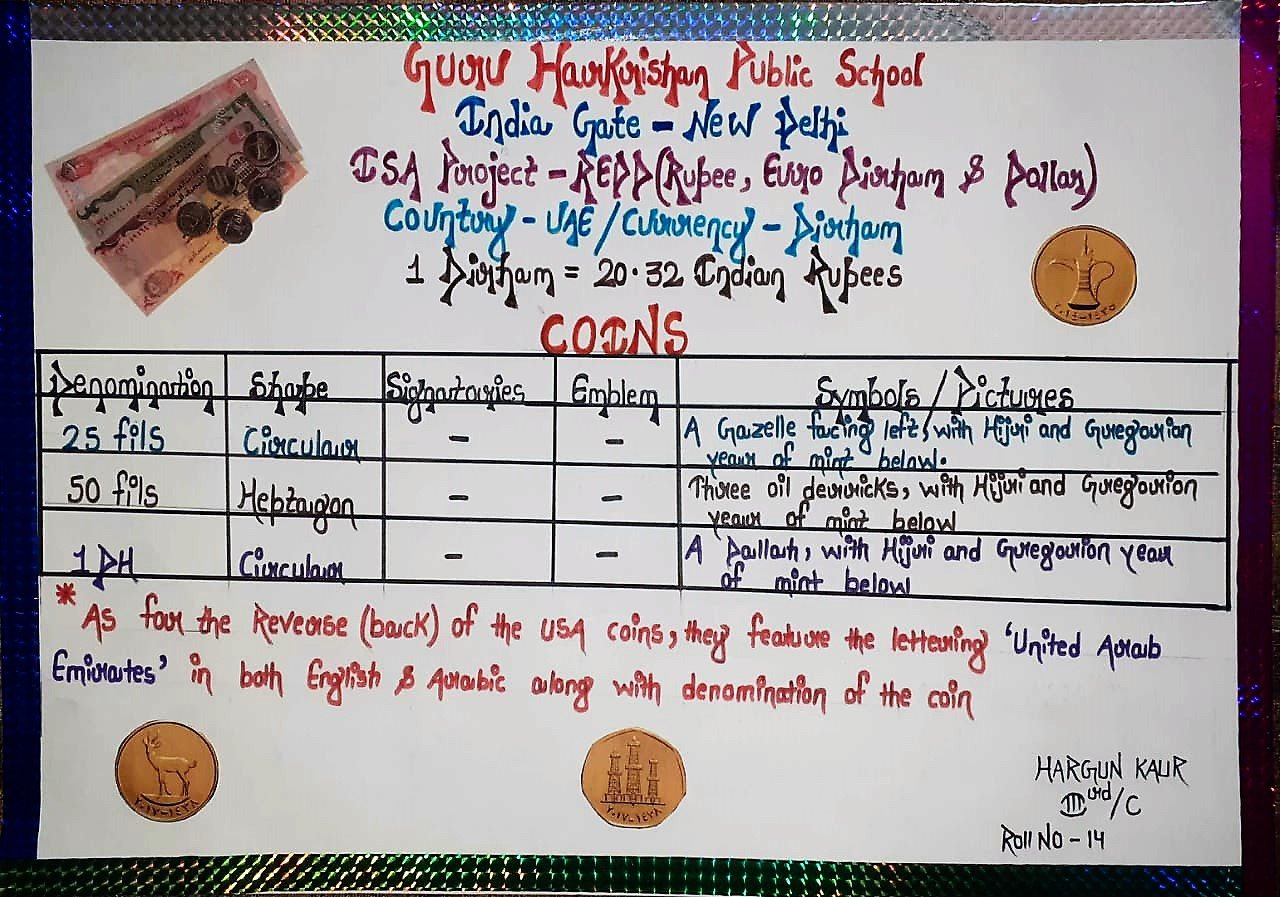 Guru HarKrishan Public School
India Gate - New Delhi
ISA Project - REDD (Rupee, Euro Dirham & Dollar)
Country - UAE / Currency - Dirham
1 Dirham = 20.32 Indian Rupees
COINS
Denomination Shape Signatories Emblem Symbols / Pictures
25 fils Circular - - A Gazelle facing left, with Hijri and Gregorian
year of mint below.
50 fils Heptagon - - Three oil derricks, with Hijri and Gregorian
year of mint below
1 DH Circular - - A Dallah, with Hijri and Gregorian year
of mint below
* As for the Reverse (back) of the USA coins, they feature the lettering 'United Arab
Emirates' in both English & Arabic along with denomination of the coin
HARGUN KAUR
IIIrd/C
Roll No - 14
٢٠١٤-١٤٣٥
٢٠١٧-١٤٣٨
٢٠١٧-١٤٣٨